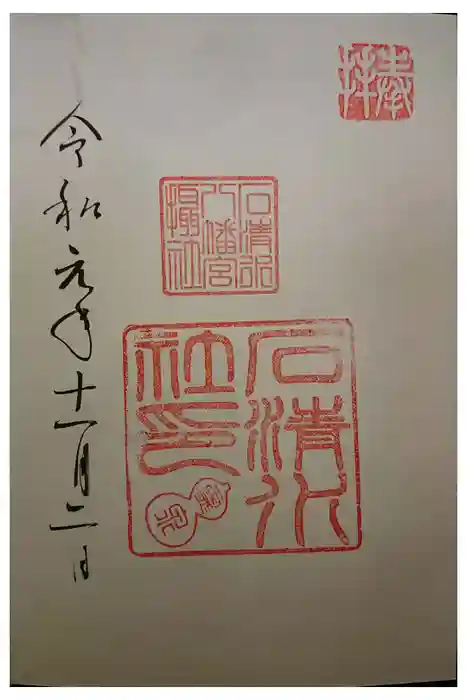 奉拝
石清水
八幡宮
攝社
石清水
社印
令和元年十一月二日